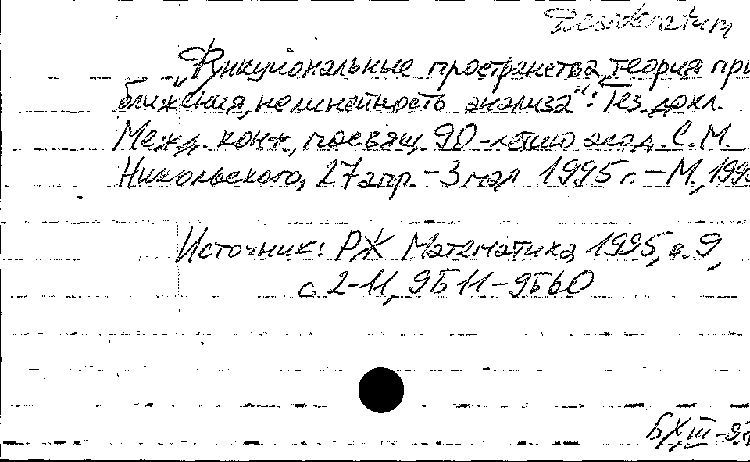 Desideratum
„Функциональные пространства, теория при
ближения, нелинейность анализа": Тез. докл.
Межд. конф., посвящ. 90-летию акад. С.М.
Никольского, 27 апр. - 3 мая 1995 г. - М., 1995
Источник: РЖ Математика 1995, в. 9,
с. 2-11, 9Б11-9Б60